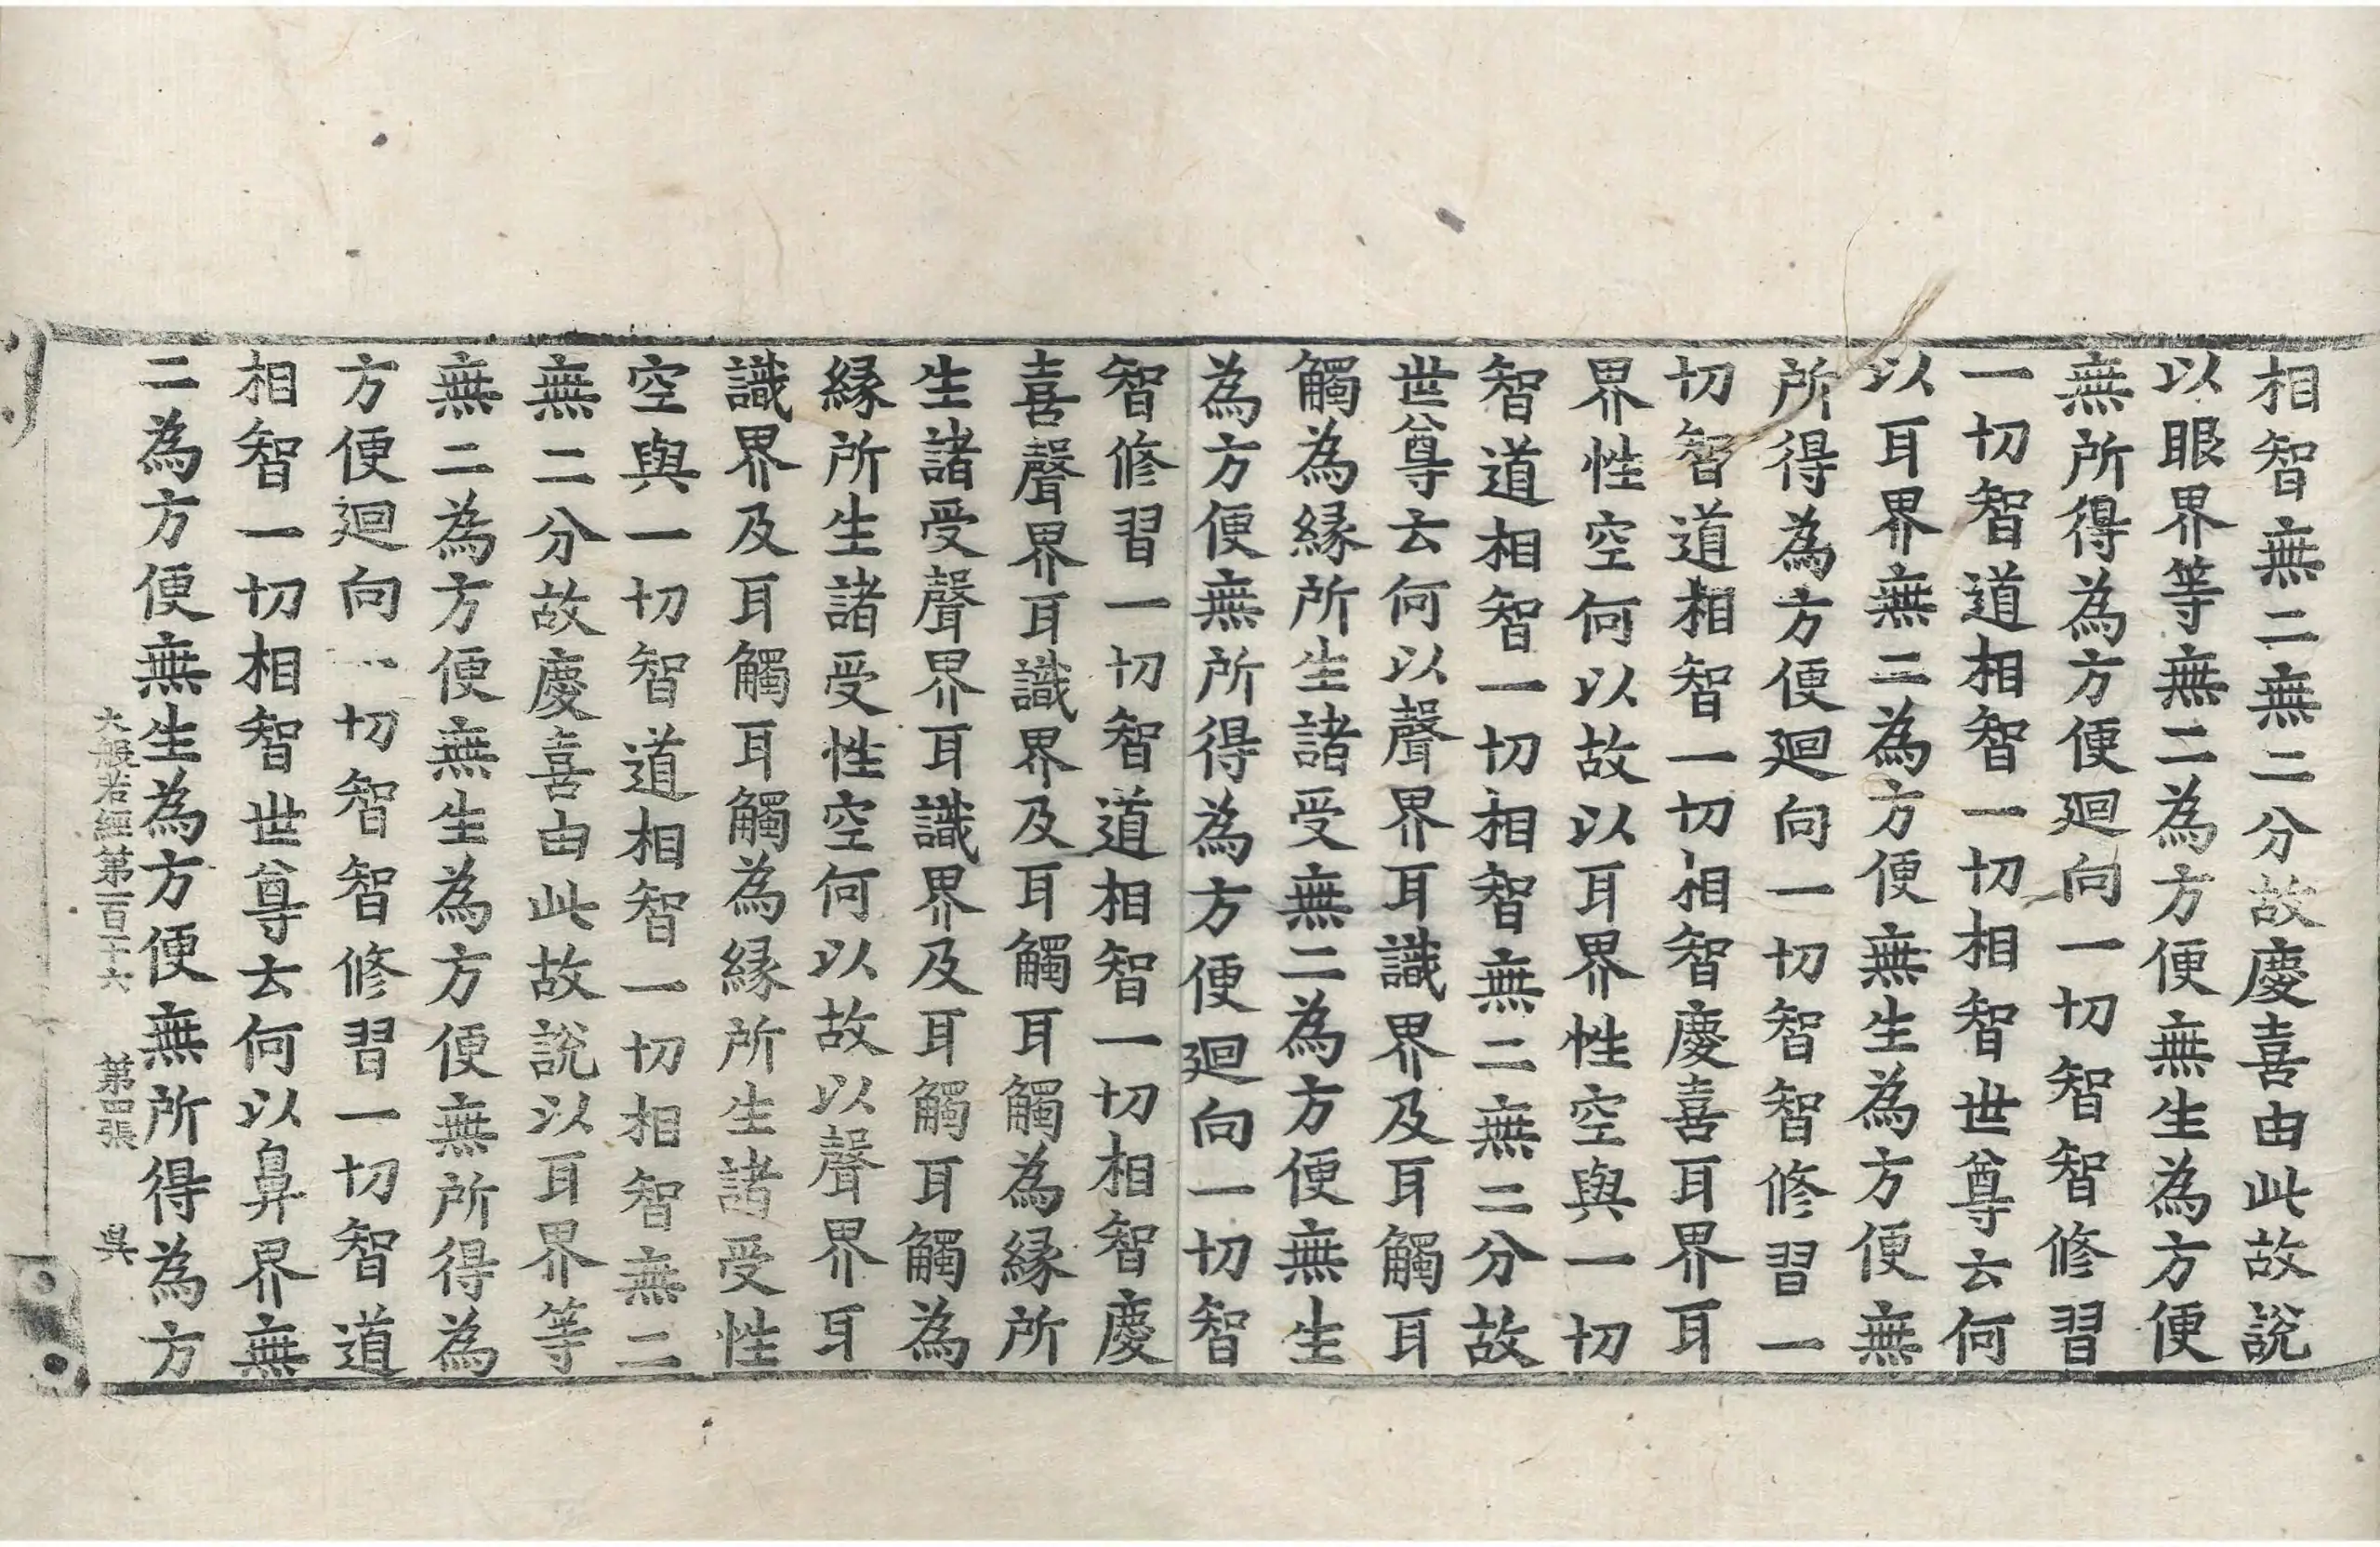 相智無二無二分故慶喜由此故說
以眼界等無二為方便無生為方便
無所得為方便迴向一切智智修習
一切智道相智一切相智世尊云何
以耳界無二為方便無生為方便無
所得為方便迴向一切智智修習一
切智道相智一切相智慶喜耳界耳
界性空何以故以耳界性空與一切
智道相智一切相智無二無二分故
世尊云何以聲界耳識界及耳觸耳
觸為緣所生諸受無二為方便無生
為方便無所得為方便迴向一切智
智修習一切智道相智一切相智慶
喜聲界耳識界及耳觸耳觸為緣所
生諸受聲界耳識界及耳觸耳觸為
緣所生諸受性空何以故以聲界耳
識界及耳觸耳觸為緣所生諸受性
空與一切智道相智一切相智無二
無二分故慶喜由此故說以耳界等
無二為方便無生為方便無所得為
方便迴向一切智智修習一切智道
相智一切相智世尊云何以鼻界無
二為方便無生為方便無所得為方
大般若經第一百一十六 第四張 昃